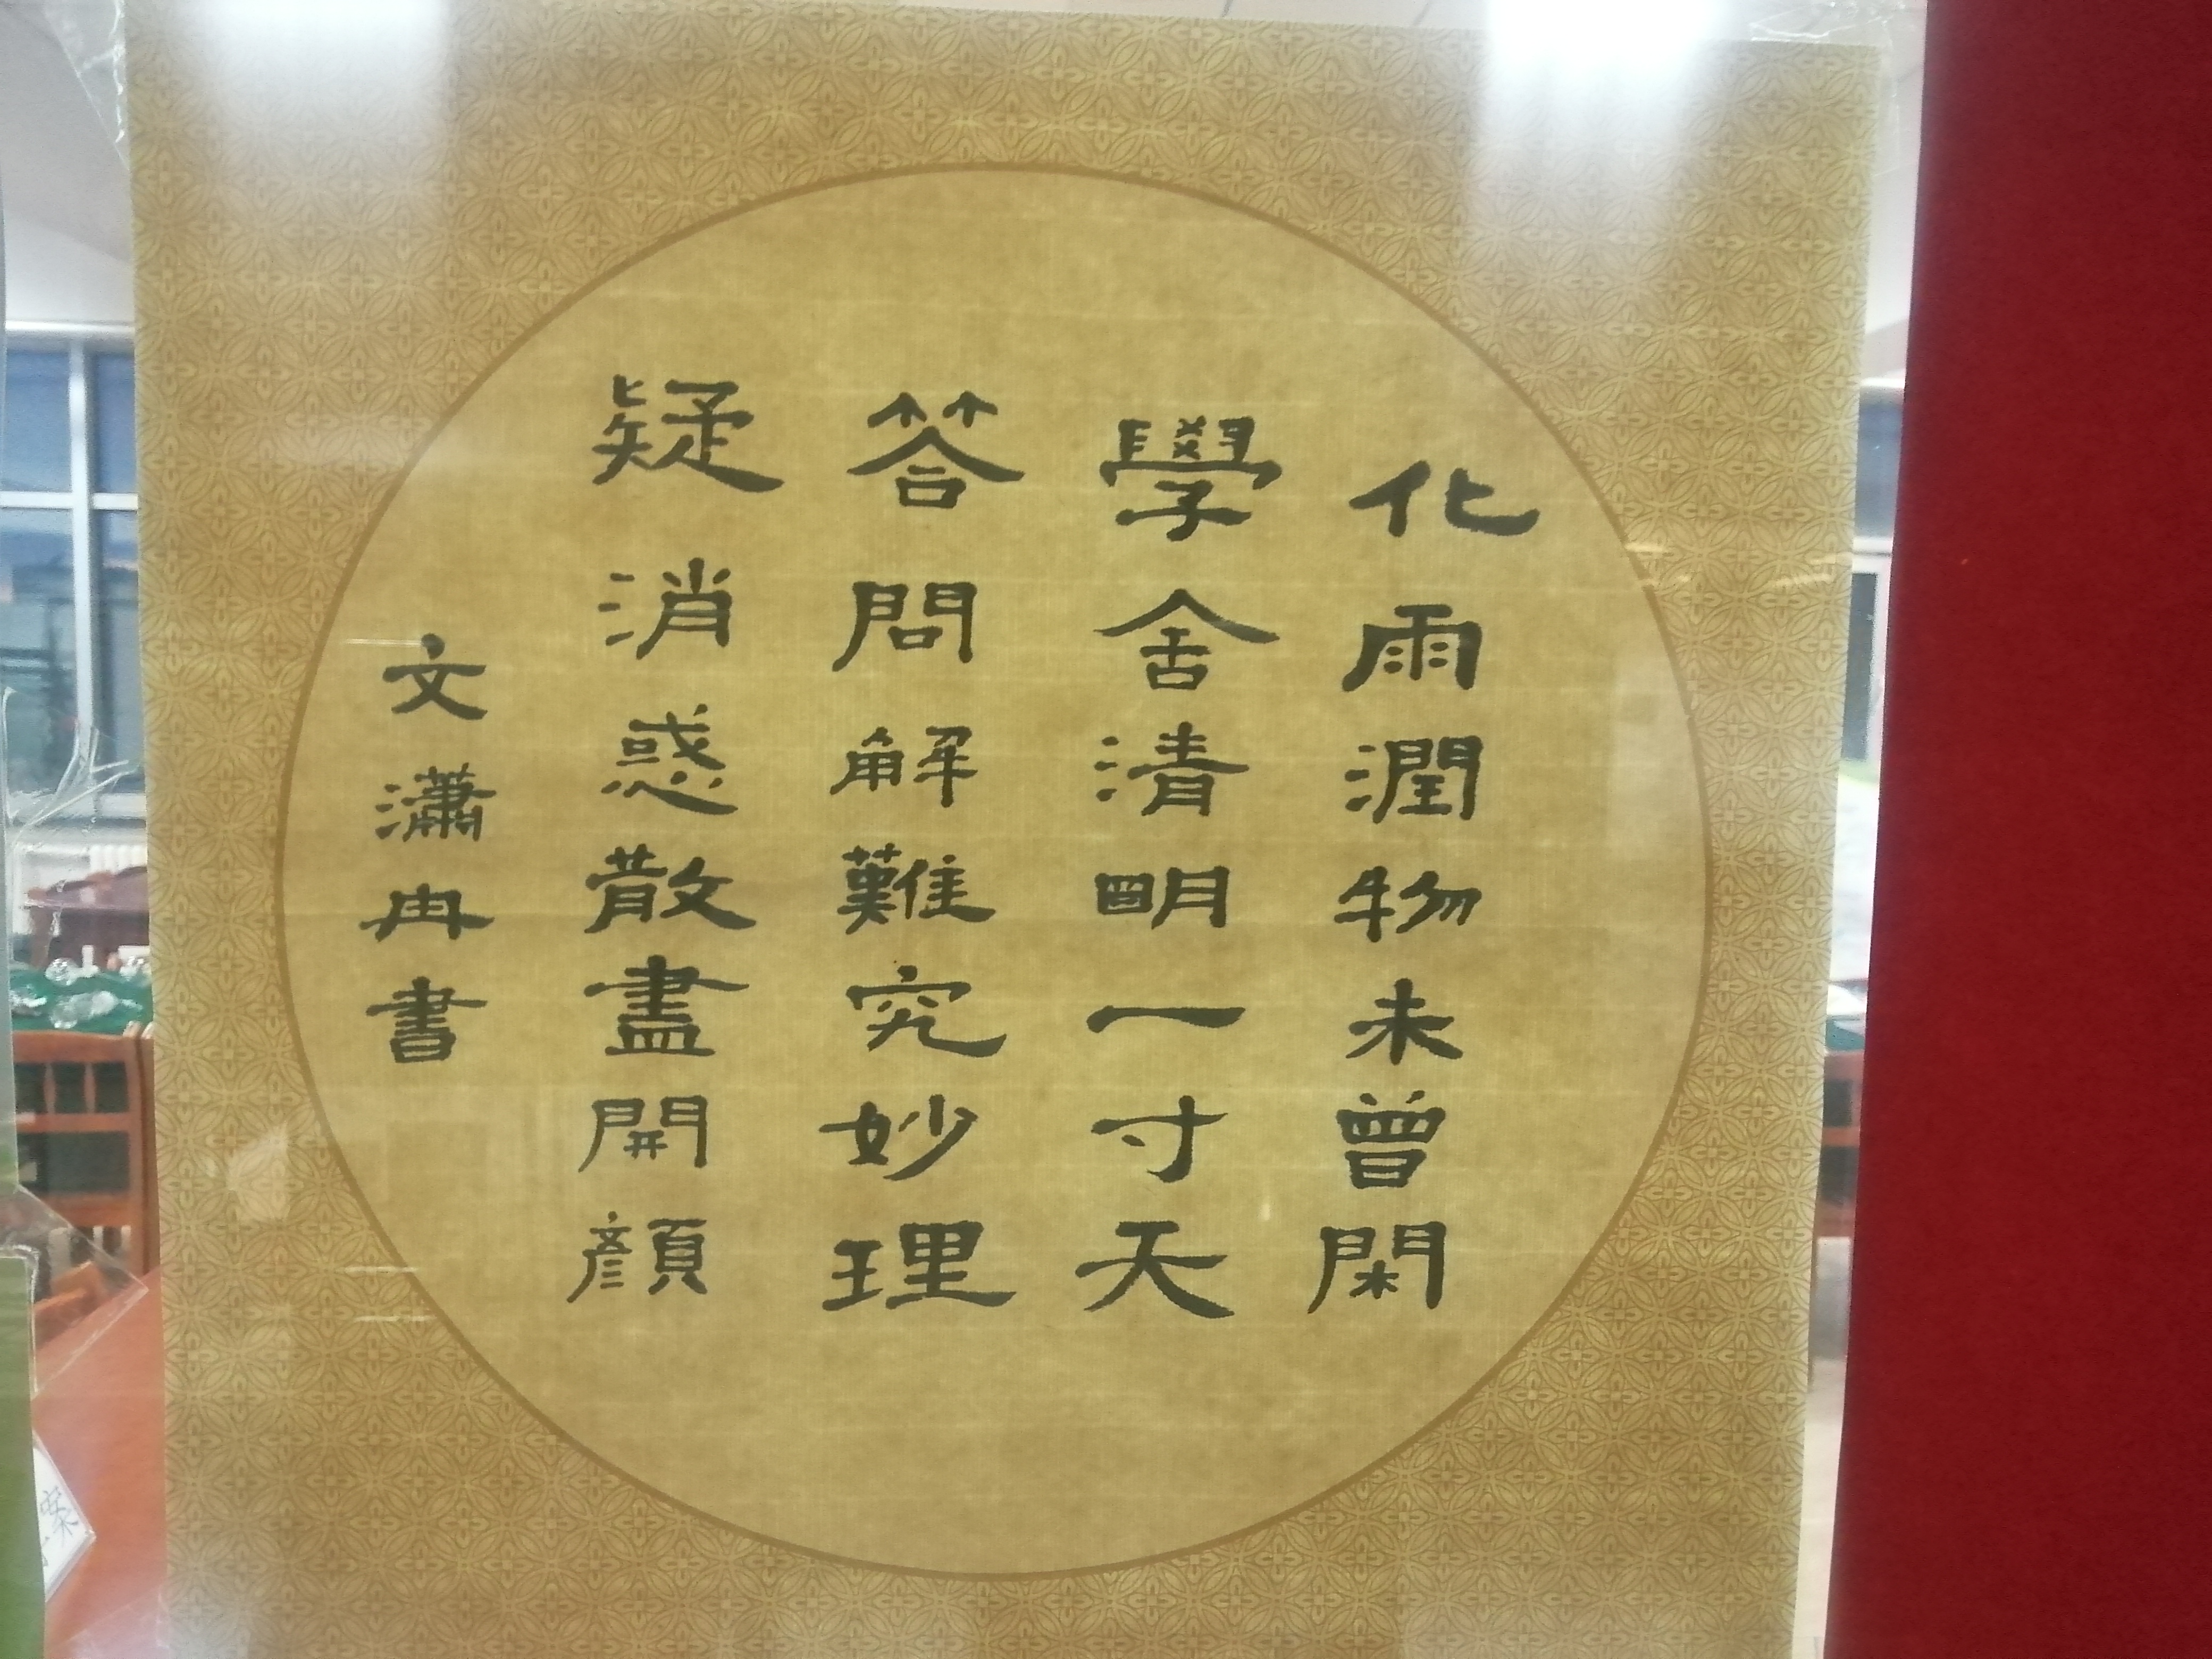 化雨潤物未曾閑
學舍清明一寸天
答問解難究妙理
疑消惑散盡開顔
文瀟冉書